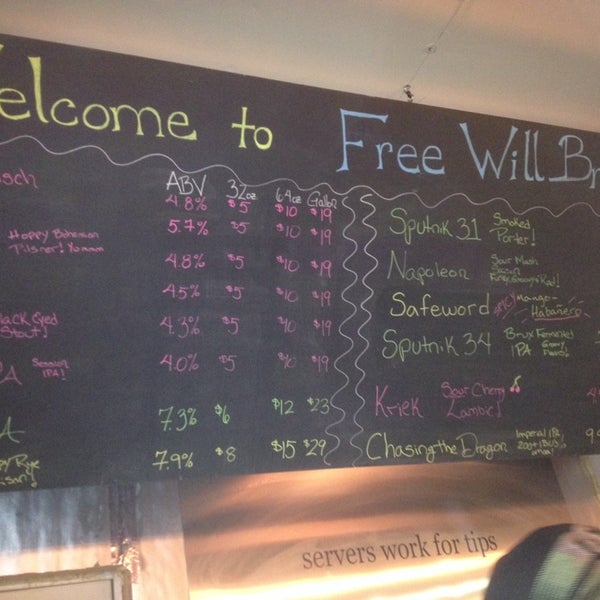 elcome to Free Will Br
sch
ABV 32oz 64oz Gallon
4.8% $5 $10 $19
Hoppy Bohemian
Pilsner! Yommm
5.7% $5 $10 $19
4.8% $5 $10 $19
4.5% $5 $10 $19
lack Eyed
Stout!
4.3% $5 $10 $19
PA Session
IPA!
4.0% $5 $10 $19
7.3% $6 $12 $23
7.9% $8 $15 $29
Sputnik 31 Smoked
Porter!
Napoleon Sour Mash
Saison
Safeword Mango-
Habañero
Sputnik 34 Brux Fermented
IPA
Kriek Sour Cherry
Lambic!
Chasing the Dragon Imperial IPA
200+ IBUs
servers work for tips